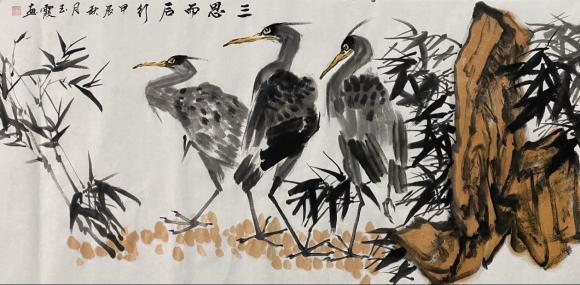 三思而后行 甲辰秋月玉霞画